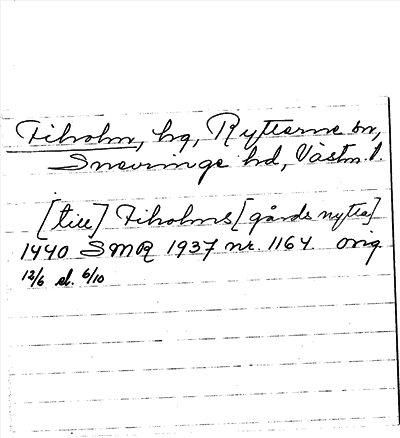 Fiholm, hg, Rytterne sn,
Snevringe hd, Västm. l.
[till] Fiholms [gårds nytta]
1440 SMR 1937 nr. 1164. orig
12/6 el. 6/10